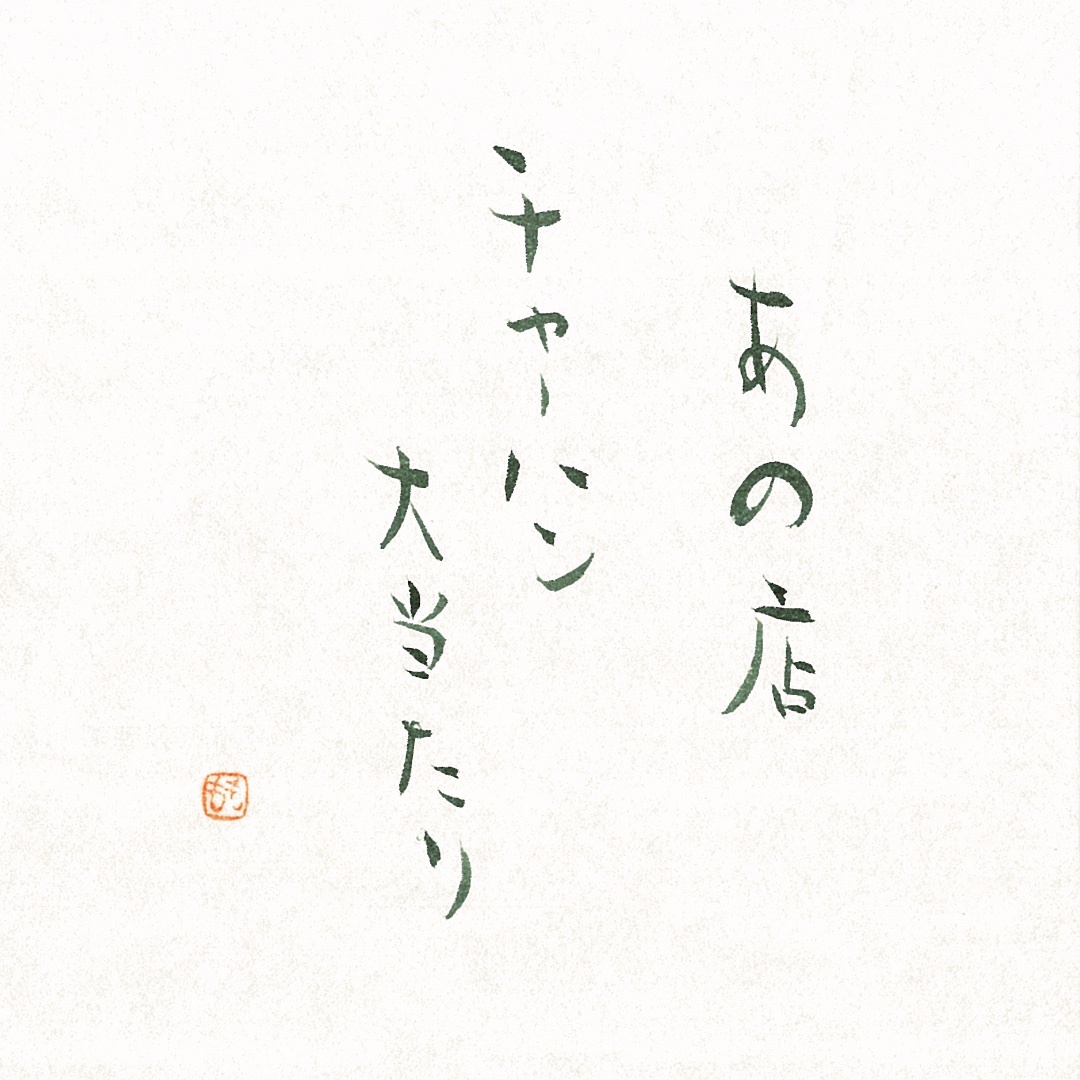 あの店
チャーハン
大当たり